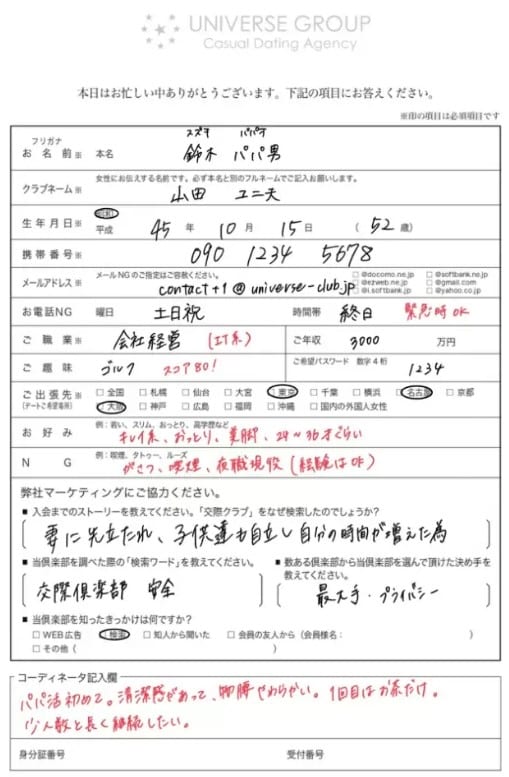 UNIVERSE GROUP
Casual Dating Agency
本日はお忙しい中ありがとうございます。下記の項目にお答えください。
※印の項目は必須項目です
フリガナ スズキ パパオ
お名前※ 本名 鈴木 パパ男
女性にお伝えする名前です。必ず本名と別のフルネームでご記入お願いします。
クラブネーム※ 山田 ユニ夫
生年月日※ 昭和 平成 45年 10月 15日 (52歳)
携帯番号※ 090 1234 5678
メールNGのご指定はご容赦ください。
メールアドレス※ contact+1@universe-club.jp
□@docomo.ne.jp □@softbank.ne.jp
□@ezweb.ne.jp □@gmail.com
□@i.softbank.jp □@yahoo.co.jp
お電話NG 曜日 土日祝 時間帯 終日 緊急時OK
ご職業※ 会社経営 (IT系) ご年収 3000 万円
ご趣味 ゴルフ スコア80! ご希望パスワード 数字4桁 1234
ご出張先※ □全国 □札幌 □仙台 □大宮 □東京 □千葉 □横浜 □名古屋 □京都
(デートご希望場所) □大阪 □神戸 □広島 □福岡 □沖縄 □国内の外国人女性
例:若い、スリム、おっとり、高学歴など
お好み キレイ系、おっとり、美脚、24~36才ぐらい
例:喫煙、タトゥー、ルーズ
NG がさつ、喫煙、夜職現役(経験はOK)
弊社マーケティングにご協力ください。
■ 入会までのストーリーを教えてください。「交際クラブ」をなぜ検索したのでしょうか?
妻に先立たれ、子供達も自立し自分の時間が増えた為
■ 当倶楽部を調べた際の「検索ワード」を教えてください。
交際倶楽部 安全
■ 数ある倶楽部から当倶楽部を選んで頂けた決め手を教えてください。
最大手・プライバシー
■ 当倶楽部を知ったきっかけは何ですか?
□WEB広告 □検索 □知人から聞いた □会員の友人から(会員様名: )
□その他( )
コーディネータ記入欄
パパ活初めて。清潔感があって、物腰やわらかい。1回目はお茶だけ。
少人数と長く継続したい。
身分証番号 受付番号